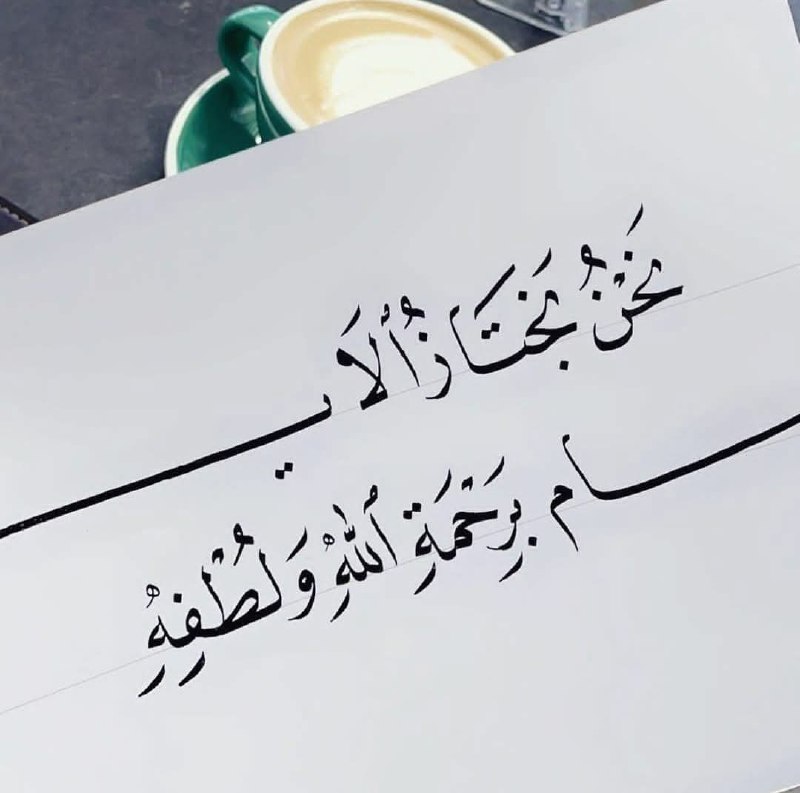 نَحْنُ نَجْتَازُ ٱلْأَيـــ
ـــام بِرَحْمَةِ ٱللهِ وَلُطْفِهِ